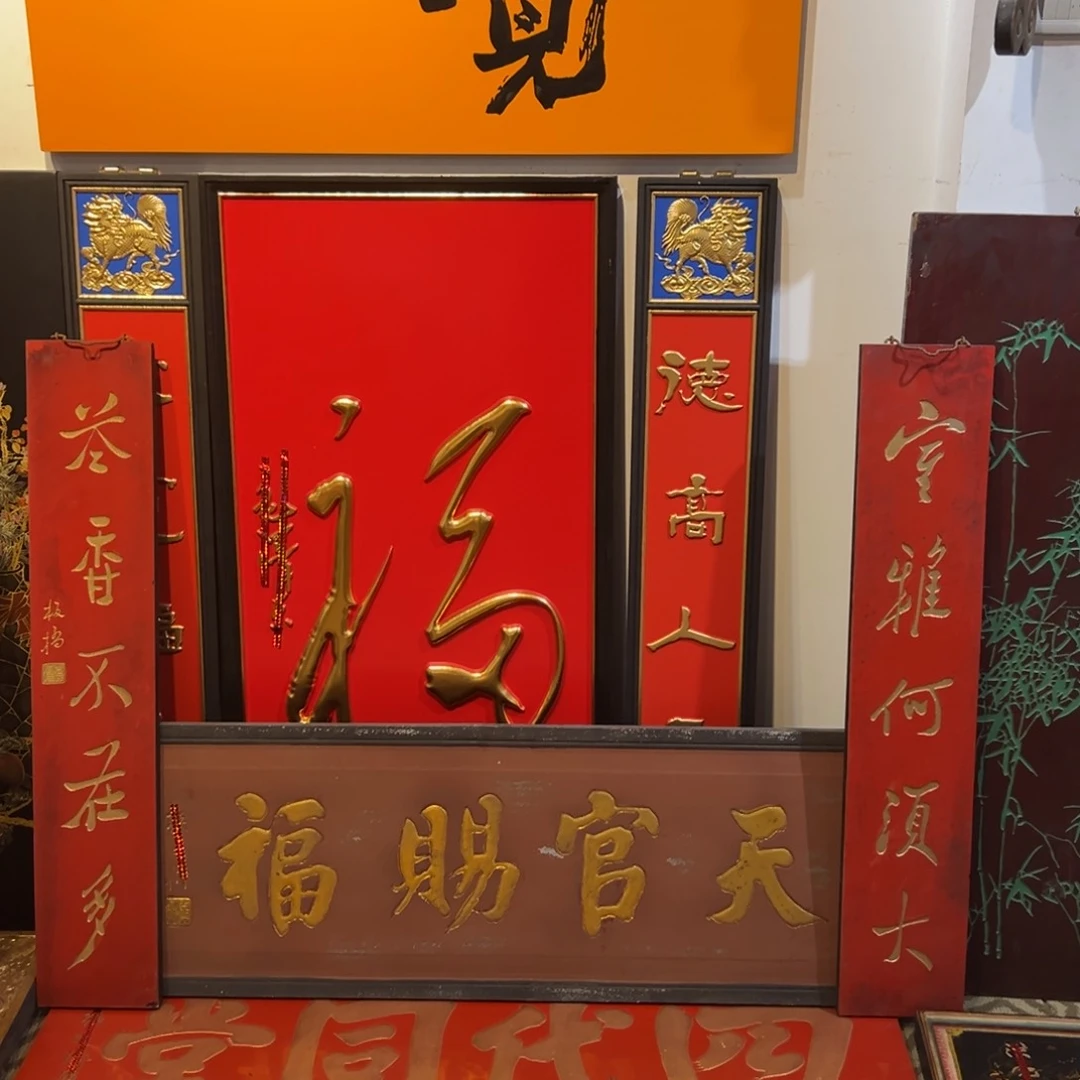 德高人
福
室雅何須大
花香不在多
板橋
天官賜福
四代同堂